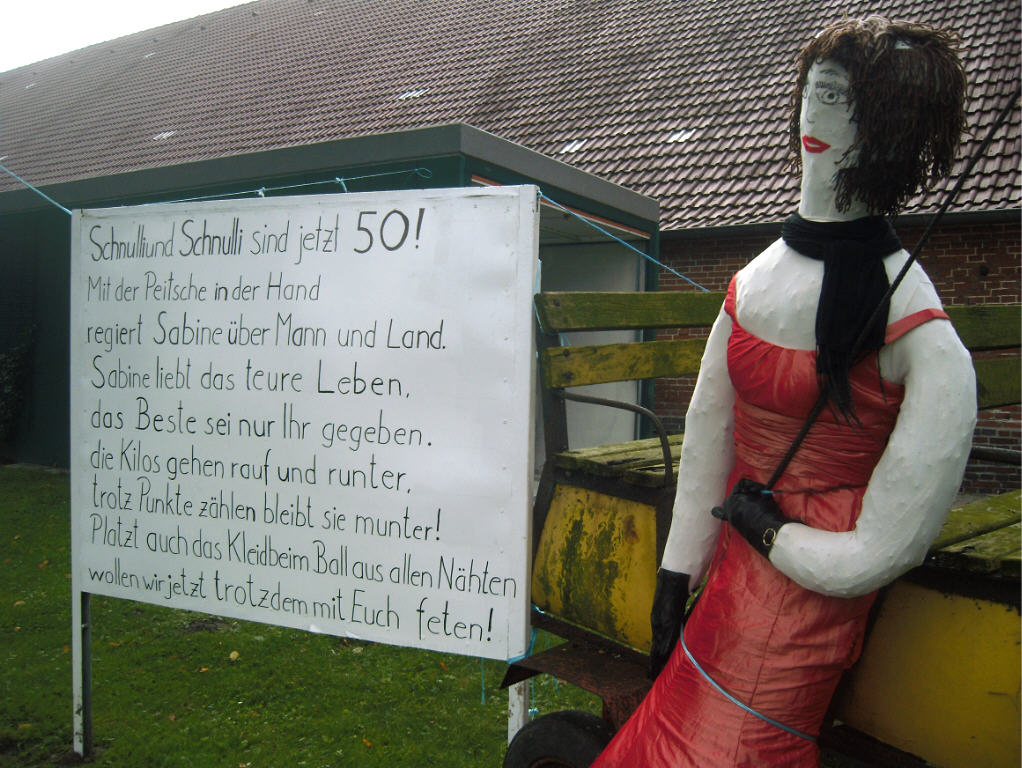 Schnulli und Schnulli sind jetzt 50!
Mit der Peitsche in der Hand
regiert Sabine über Mann und Land.
Sabine liebt das teure Leben,
das Beste sei nur Ihr gegeben.
die Kilos gehen rauf und runter,
trotz Punkte zählen bleibt sie munter!
Platzt auch das Kleid beim Ball aus allen Nähten
wollen wir jetzt trotzdem mit Euch feten!